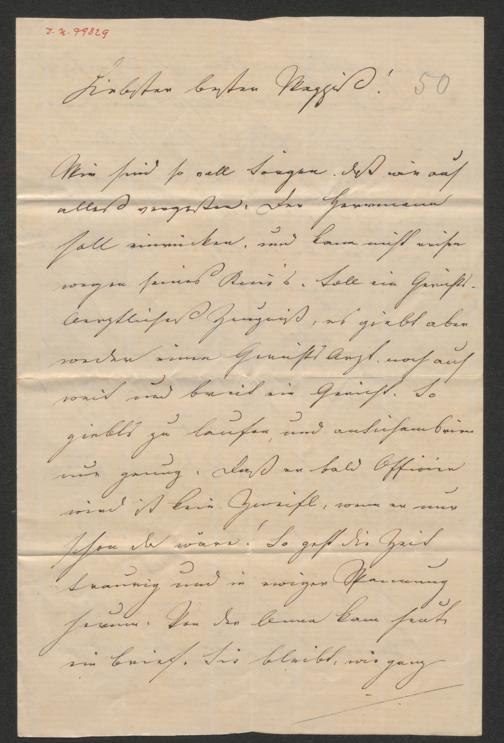 I. N. 99829
50
Liebster bester Maggis!
Wir sind so voll Sorgen, daß wir auf
alles vergessen. Der Herrmann
soll einrücken, und kann nicht reisen
wegen seines Knie's. Soll ein Gerichts-
Aerztliches Zeugniß, es giebt aber
weder einen Gerichts Arzt noch auf
weit und breit ein Gericht. So
giebts zu laufen, und antichambriren
nur genug. Daß er bald Officier
wird ist kein Zweifl, wenn er nur
schon da wäre! So geht die Zeit
traurig und in ewiger Spannung
herum. Von der Anna kam heute
ein Brief. Sie bleibt, wie ganz